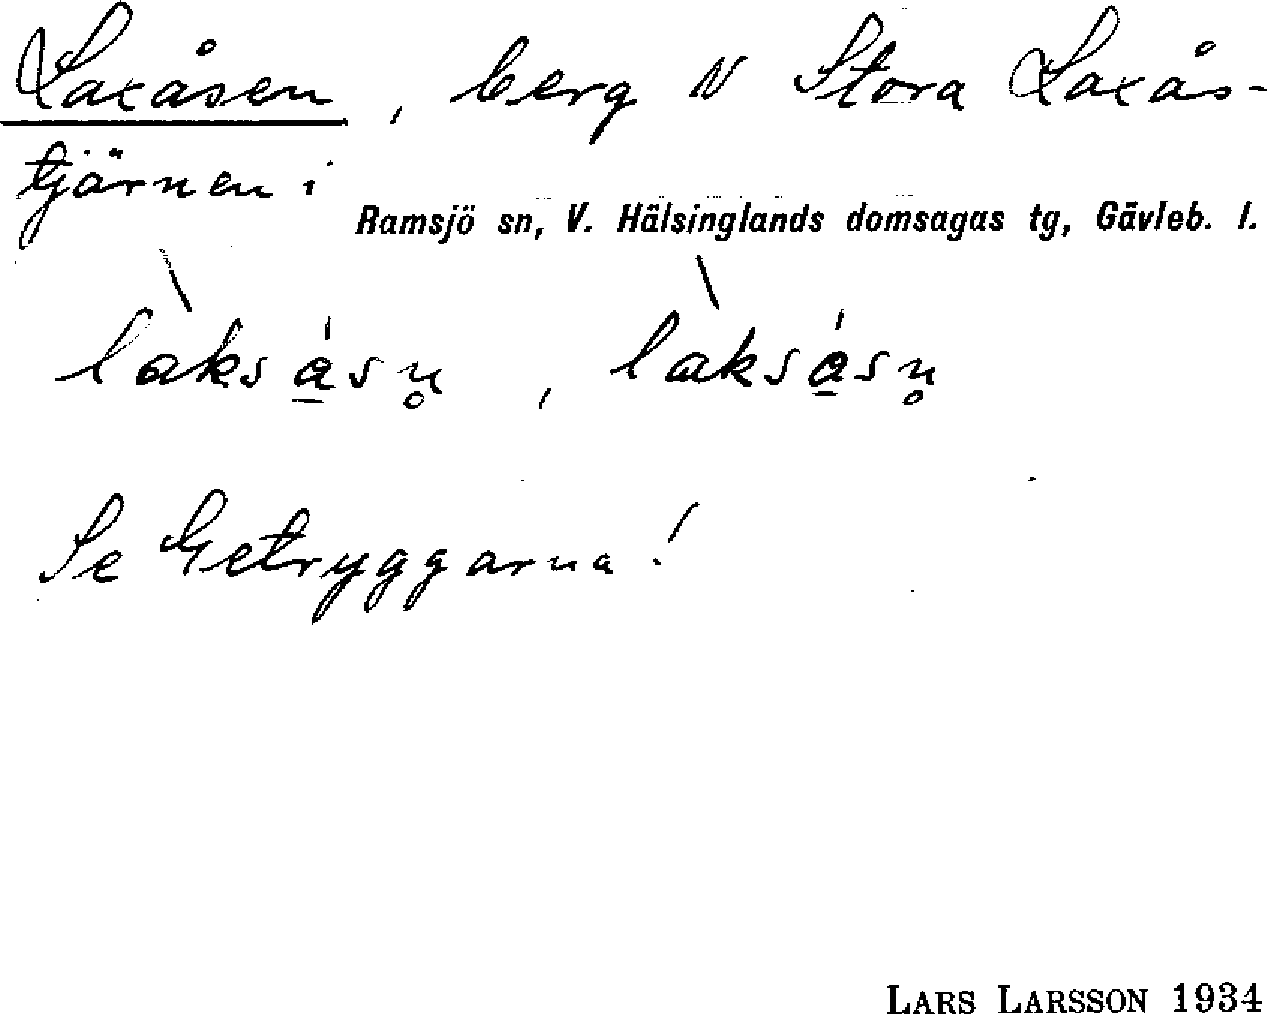 Laxåsen, berg N Stora Laxås-
tjärnen i
Ramsjö sn, V. Hälsinglands domsagas tg, Gävleb. l.
làksá̲sn̥, làksá̲sn̥
Se Getryggarna!
LARS LARSSON 1934